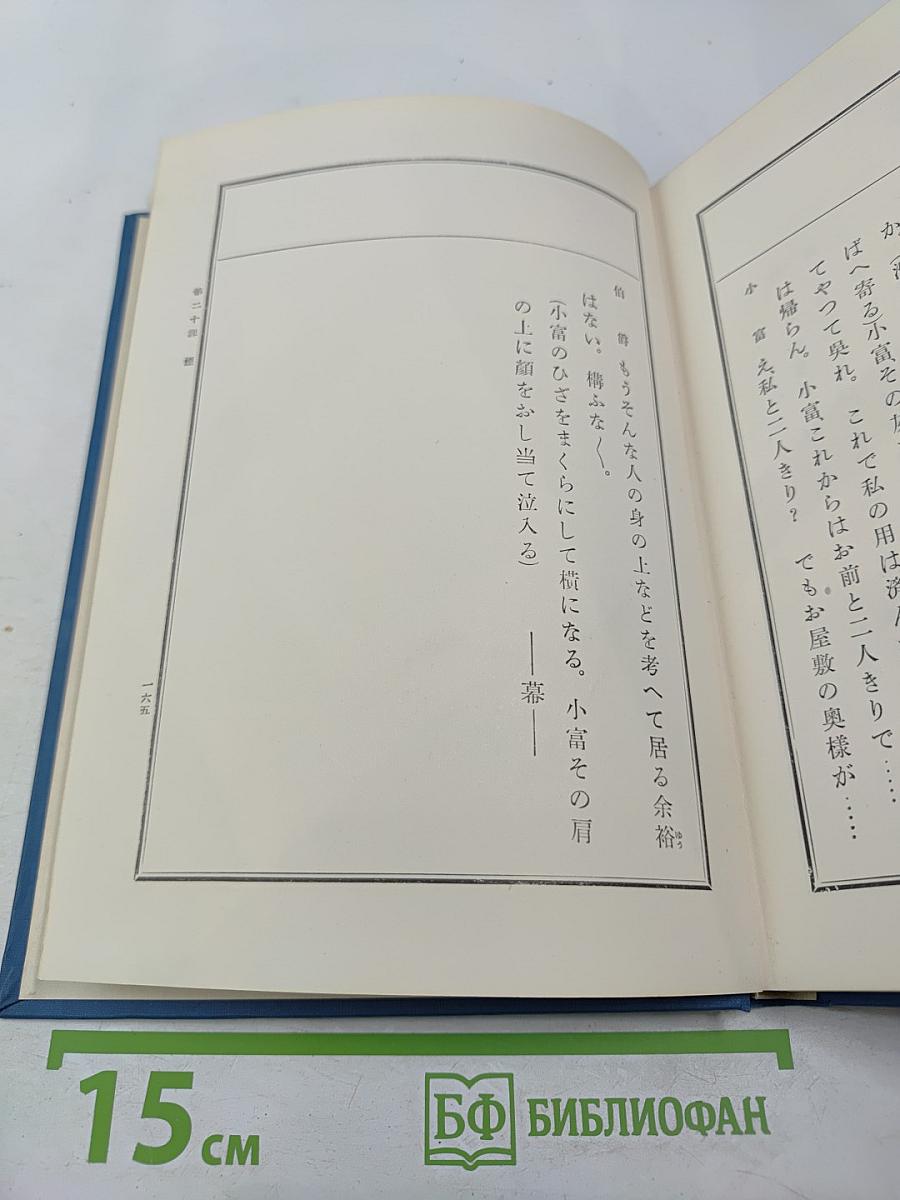 ばへ寄る)小富、その
てやつて呉れ。これで私の用は済ん
は帰らん。小富、これからはお前と二人きりで……
小富 え、私と二人きり? でもお屋敷の奥様が……
伯爵 もうそんな人の身の上などを考へて居る余裕
ゆう
はない。構ふな〱。
(小富のひざをまくらにして横になる。小富その肩
の上に顔をおし当て泣入る)
――幕――
第二十課
一六五
15 см
БФ БИБЛИОФАН